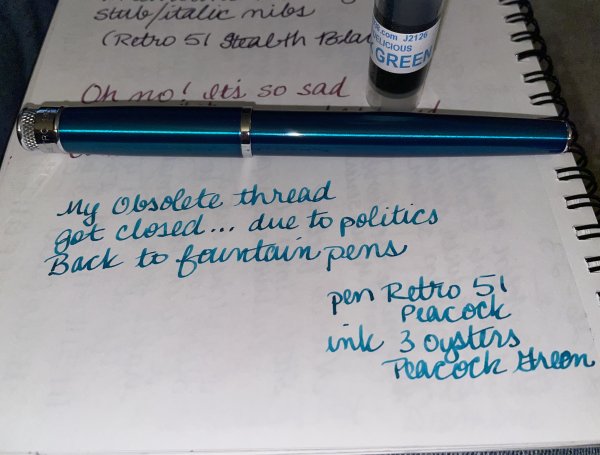 stub/italic nibs
(Retro 51 Stealth
.com J2126
DELICIOUS
GREEN
Oh no! It's so sad
My Obsolete thread
got closed... due to politics
Back to fountain pens
pen Retro 51
Peacock
ink 3 oysters
Peacock Green